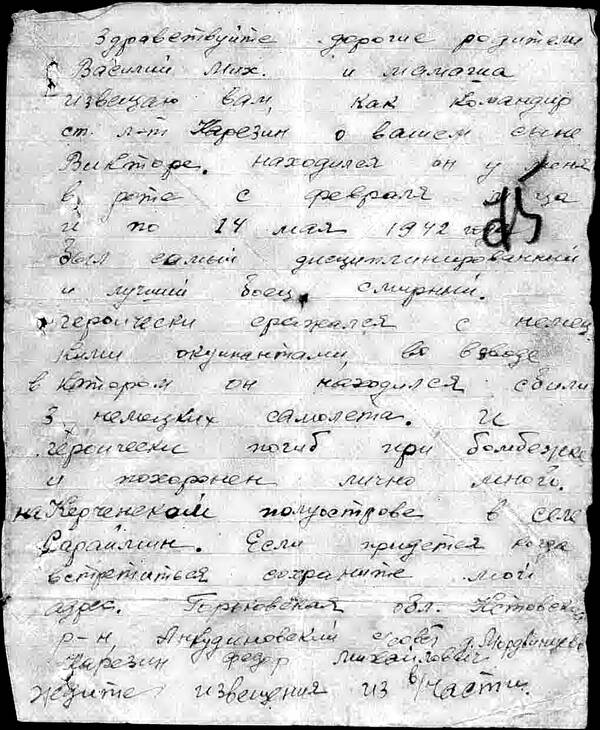 Здравствуйте дорогие родители
Василий Мих. и мамаша
извещаю вам, как командир
ст. л-т Карезин о вашем сыне
Викторе. находился он у меня
в роте с февраля
и по 14 мая 1942 года
был самый дисциплинированный
и лучший боец, смирный.
героически сражался с немец
кими окупантами, во взводе
в котором он находился сбили
3 немецких самолета. И
героически погиб при бомбежке
и похоронен лично мною.
на Керченском полуострове в селе
Сараймин. Если придется когда
встретиться сохраните мой
адрес. Горьковская обл. Кстовский
р-н, Анкудиновский с/совет д. Мордвинцево
Карезин Федор Михайлович
Ждите извещения из в/части.